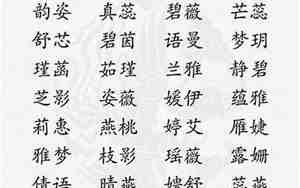 韵姿 真蕊 碧薇 芒蕊
舒芯 碧茵 语曼 梦玥
瑾菡 茹瑾 兰雅 静碧
芝影 姿薇 媛伊 蕴雅
莉惠 燕桃 婷艾 雁婕
雅梦 枝影 瑶薇 露姗
倩语 晴燕 嫂舒 蕊燕